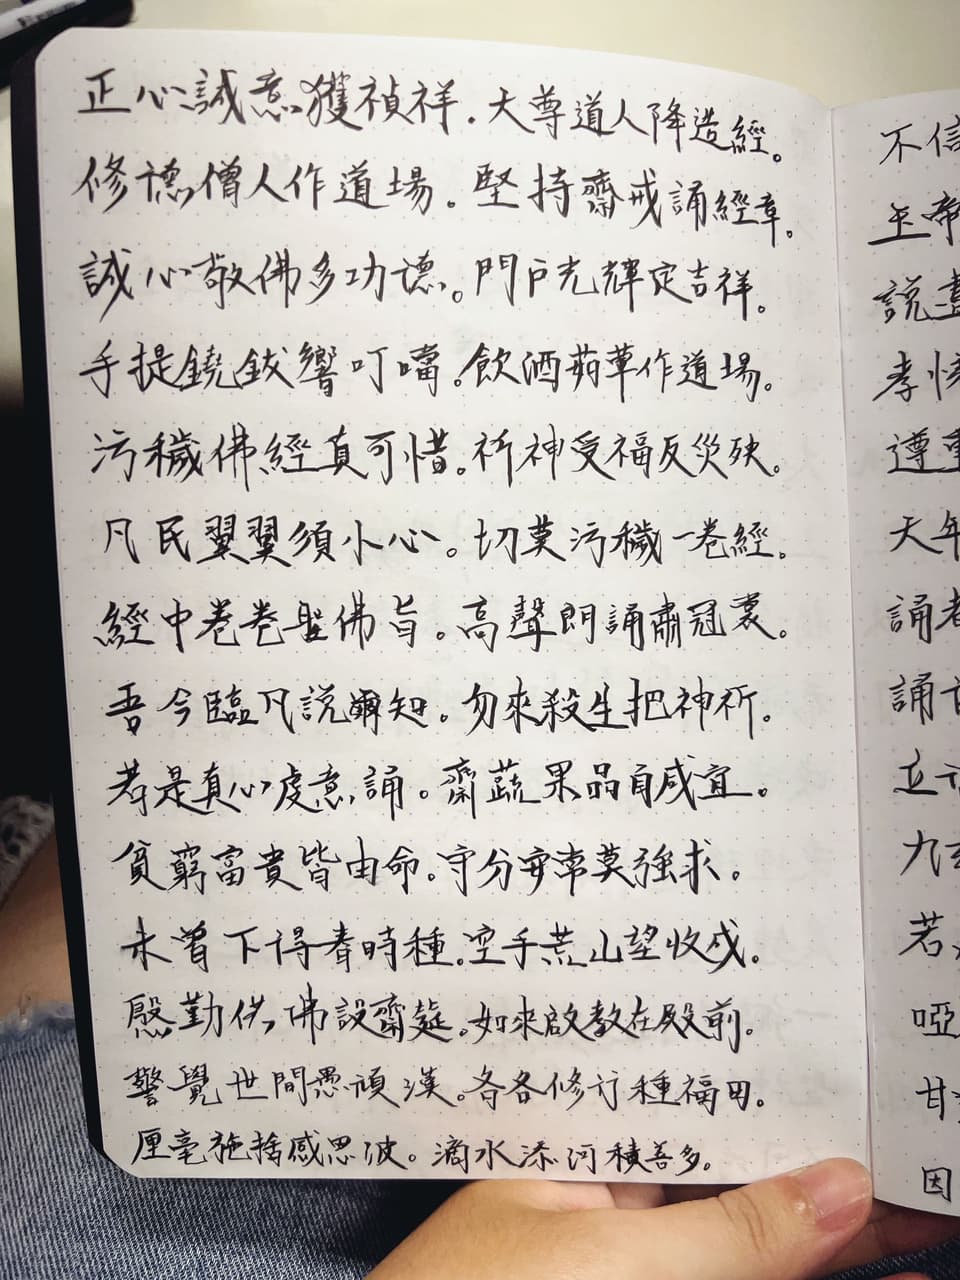 正心誠意獲禎祥.大尊道人降造經。
修德僧人作道場。堅持齋戒誦經章。
誠心敬佛多功德。門戶光輝定吉祥。
手提鐃鈸響叮噹。飲酒茹葷作道場。
污穢佛經真可惜。祈神受福反災殃。
凡民翼翼須小心。切莫污穢一卷經。
經中卷卷聖佛旨。高聲朗誦肅冠裳。
吾今臨凡說爾知。勿來殺生把神祈。
若是真心虔意誦。齋蔬果品自咸宜。
貧窮富貴皆由命。守分安常莫強求。
未曾下得春時種。空手荒山望收成。
慇勤供佛設齋筵。如來啟教在殿前。
警覺世間愚頑漢。各各修行種福田。
厘毫施捨感恩波。滴水添河積善多。
不信
玉帝
說盡
孝
遵重
天年
誦者
誦
立
九
若
啞
甘
因